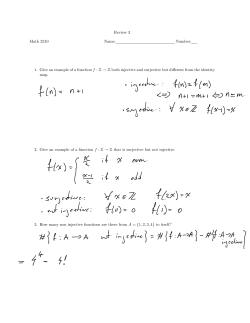 Review 3
Math 2230 Name: Number:
1. Give an example of a function f : Z → Z both injective and surjective but different from the identity
map.
f(n) = n+1
• injective: f(n)=f(m)
⟺ n+1=m+1 ⟺ n=m
• surjective: ∀ x∈Z f(x-1)=x
2. Give an example of a function f : Z → Z that is surjective but not injective.
f(x) = { x/2 if x even
x-1/2 if x odd
• surjective: ∀ x∈Z f(2x)=x
• not injective: f(0)=0 f(1)=0
3. How many non injective functions are there from A = {1,2,3,4} to itself?
#{f:A→A not injective} = #{f:A→A} - #{f:A→A injective}
= 4^4 - 4!